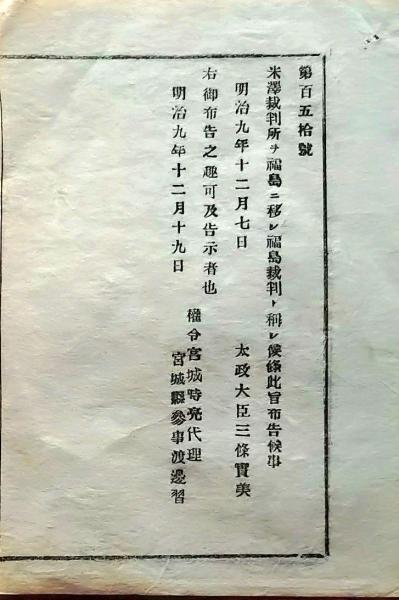 第百五拾號
米澤裁判所ヲ福島ニ移シ福島裁判ト稱シ候條此旨布告候事
明治九年十二月七日　太政大臣三條實美
右御布告之趣可及告示者也
明治九年十二月十九日
權令宮城時亮代理
宮城縣參事渡邊習